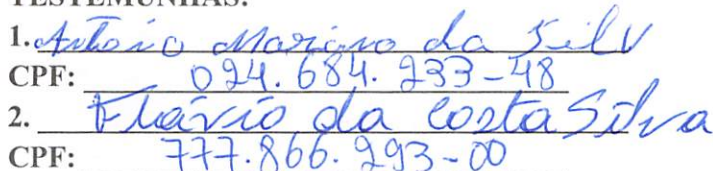 TESTEMUNHAS:
1. Antonio Mariano da Silv
CPF: 094.684.933-48
2. Flávio da Costa Silva
CPF: 777.866.293-00